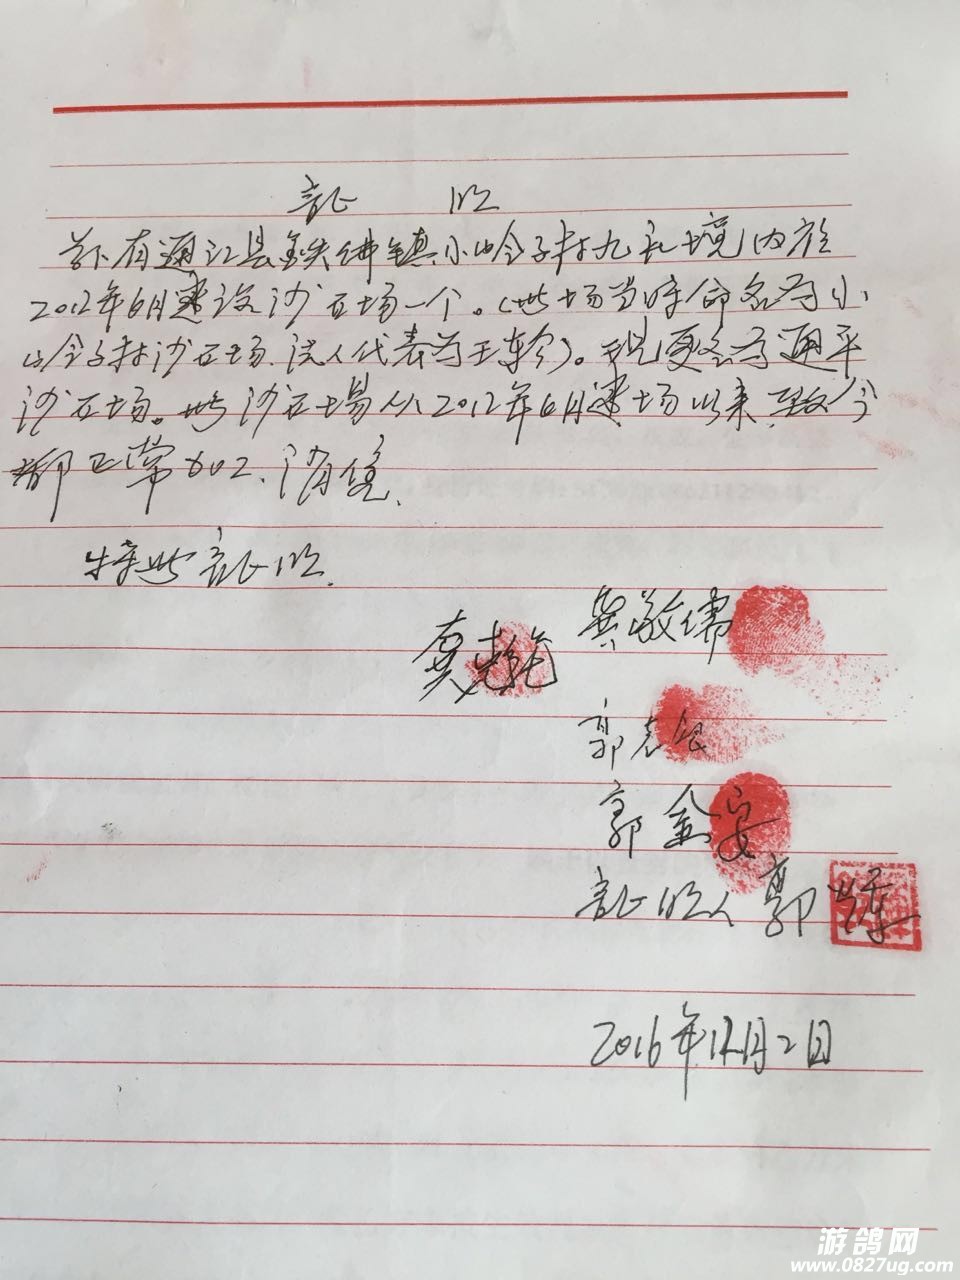 証 明
兹有通江县铁佛镇小岭子村九社境内於
2012年6月建设沙石场一个。(此场当时命名为小
岭子村沙石场.法人代表为王)。现更名为通平
沙石场。此沙石場从2012年6月建场以来,致今
都正常加工、销售.
特此証明.
龚敬儒
郭
郭金安
証明人 郭
2016年12月2日
游鸽网
www.0827ug.com